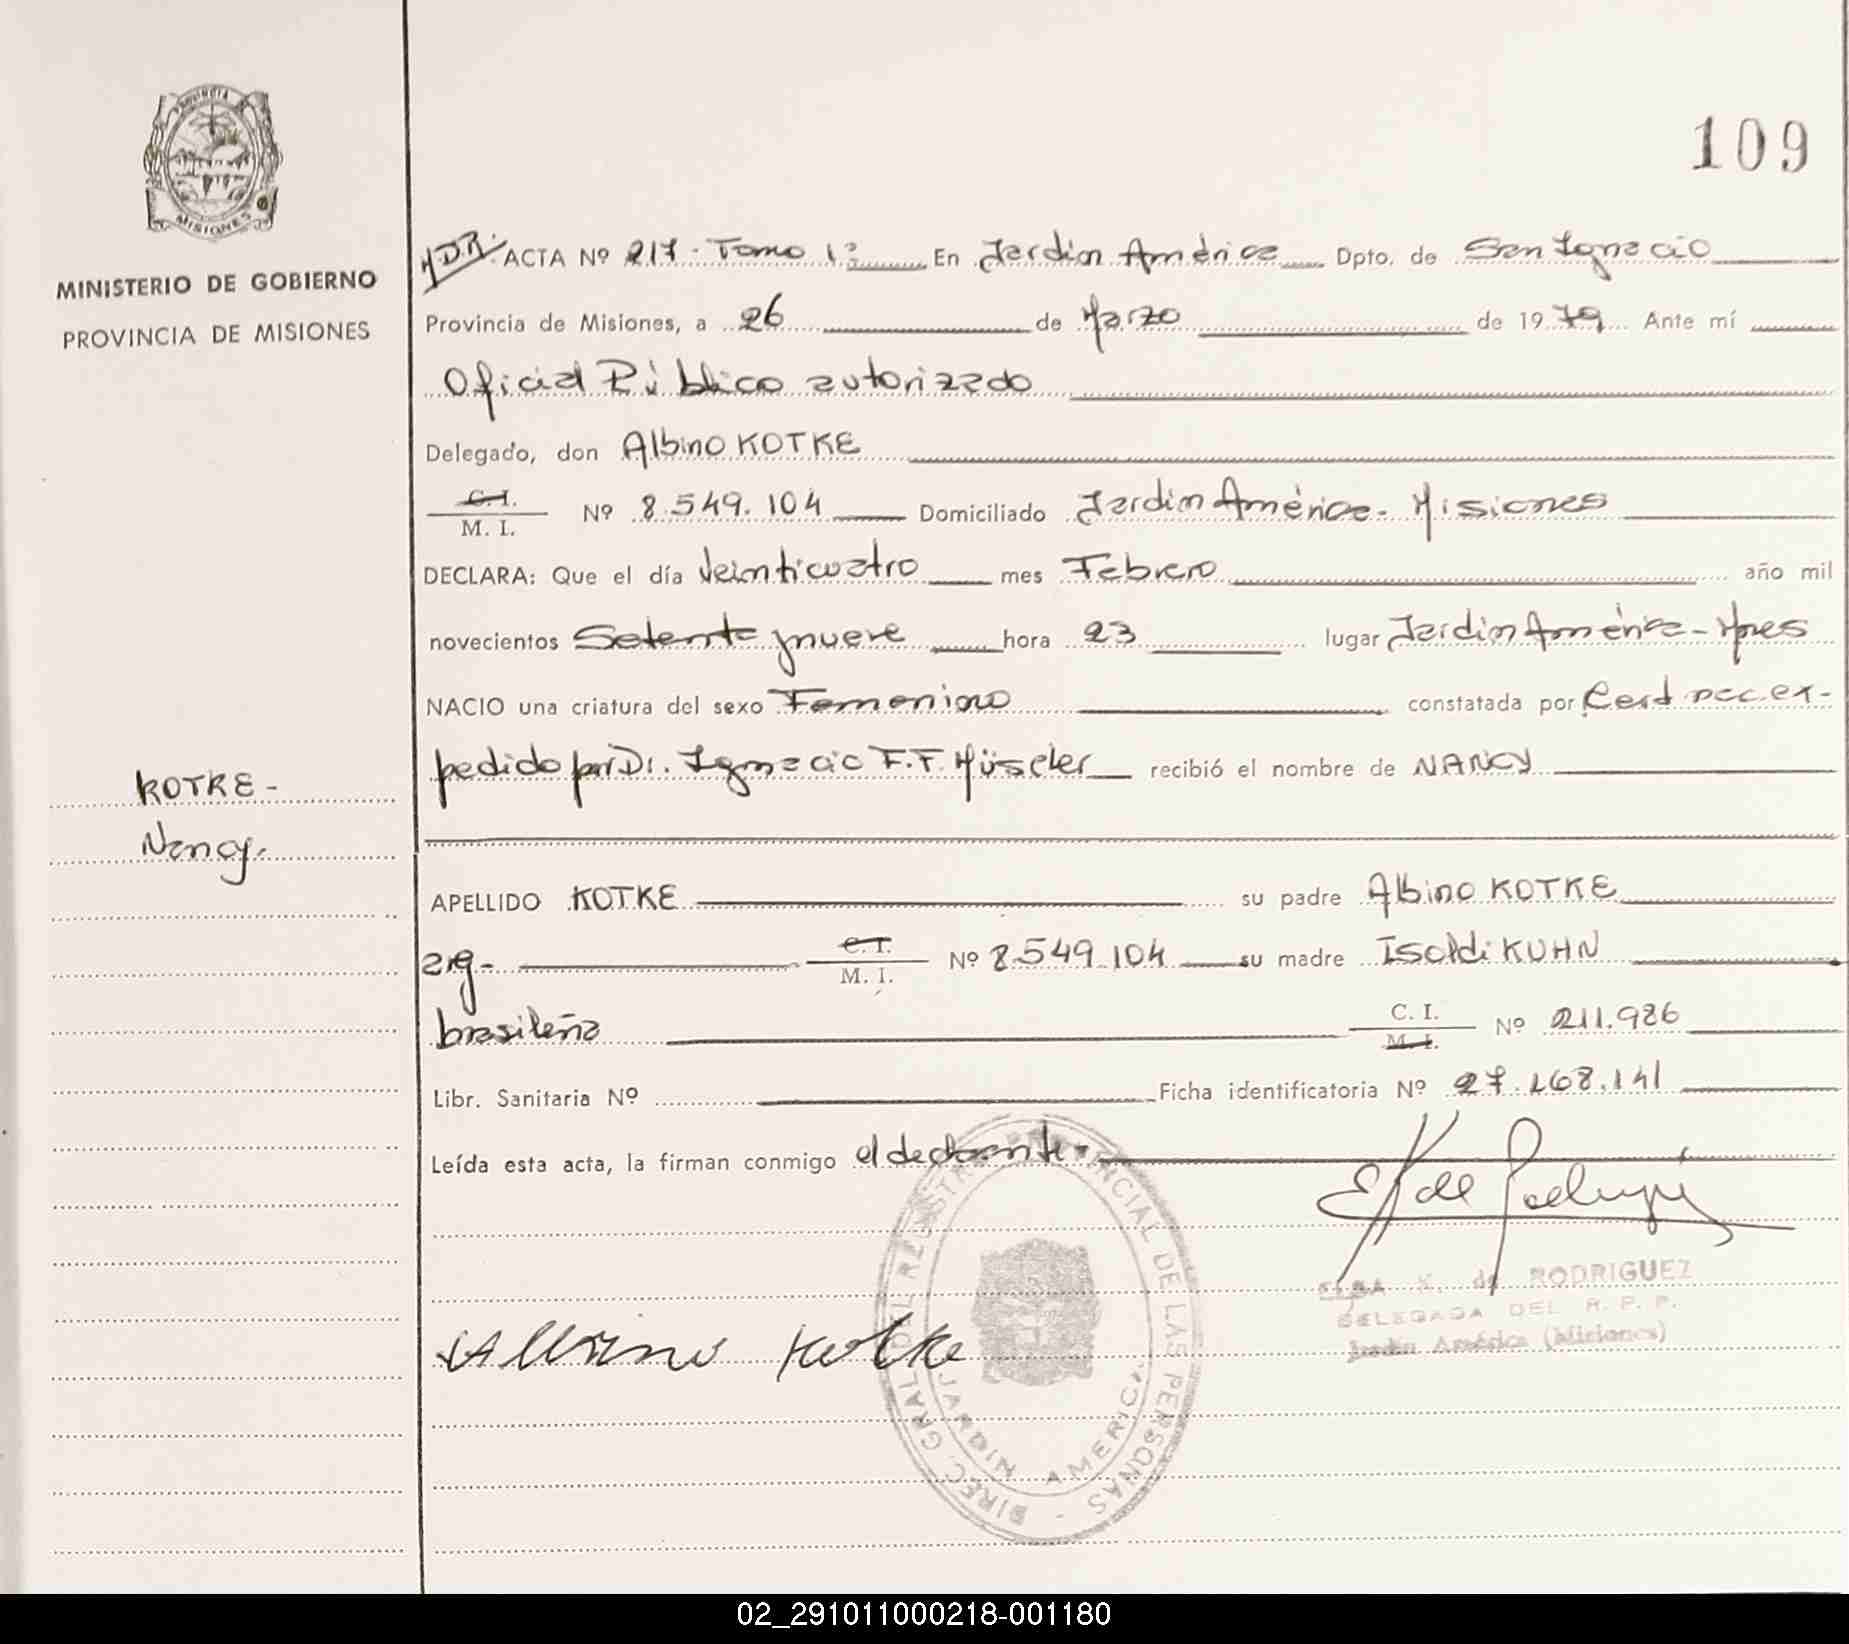 109
PROVINCIA
MISIONES
MINISTERIO DE GOBIERNO
PROVINCIA DE MISIONES
ACTA Nº 217 - Tomo 1º En Jardín América Dpto. de San Ignacio
Provincia de Misiones, a 26 de Marzo de 1979 Ante mí
Oficial Público autorizado
Delegado, don Albino KOTKE
C. I.
M. I. Nº 8.549.104 Domiciliado Jardín América - Misiones
DECLARA: Que el día Veinticuatro mes Febrero año mil
novecientos Setenta y nueve hora 23 lugar Jardín América - Mnes
NACIO una criatura del sexo Femenino constatada por Cert nac. ex-
pedido por Dr. Ignacio F.F. Müseler recibió el nombre de NANCY
KOTKE -
Nancy.
APELLIDO KOTKE su padre Albino KOTKE
arg- C. I.
M. I. Nº 8.549.104 su madre Isoldi KUHN
brasileña C. I.
M. I. Nº 211.986
Libr. Sanitaria Nº Ficha identificatoria Nº 27.168.141
Leída esta acta, la firman conmigo el declarante-
K de Rodríguez
K. de RODRIGUEZ
DELEGADA DEL R. P. P.
Jardín América (Misiones)
Albino Kotke
DIREC. GRAL. DEL REGISTRO PROVINCIAL DE LAS PERSONAS -
JARDIN AMERICA
02_291011000218-001180